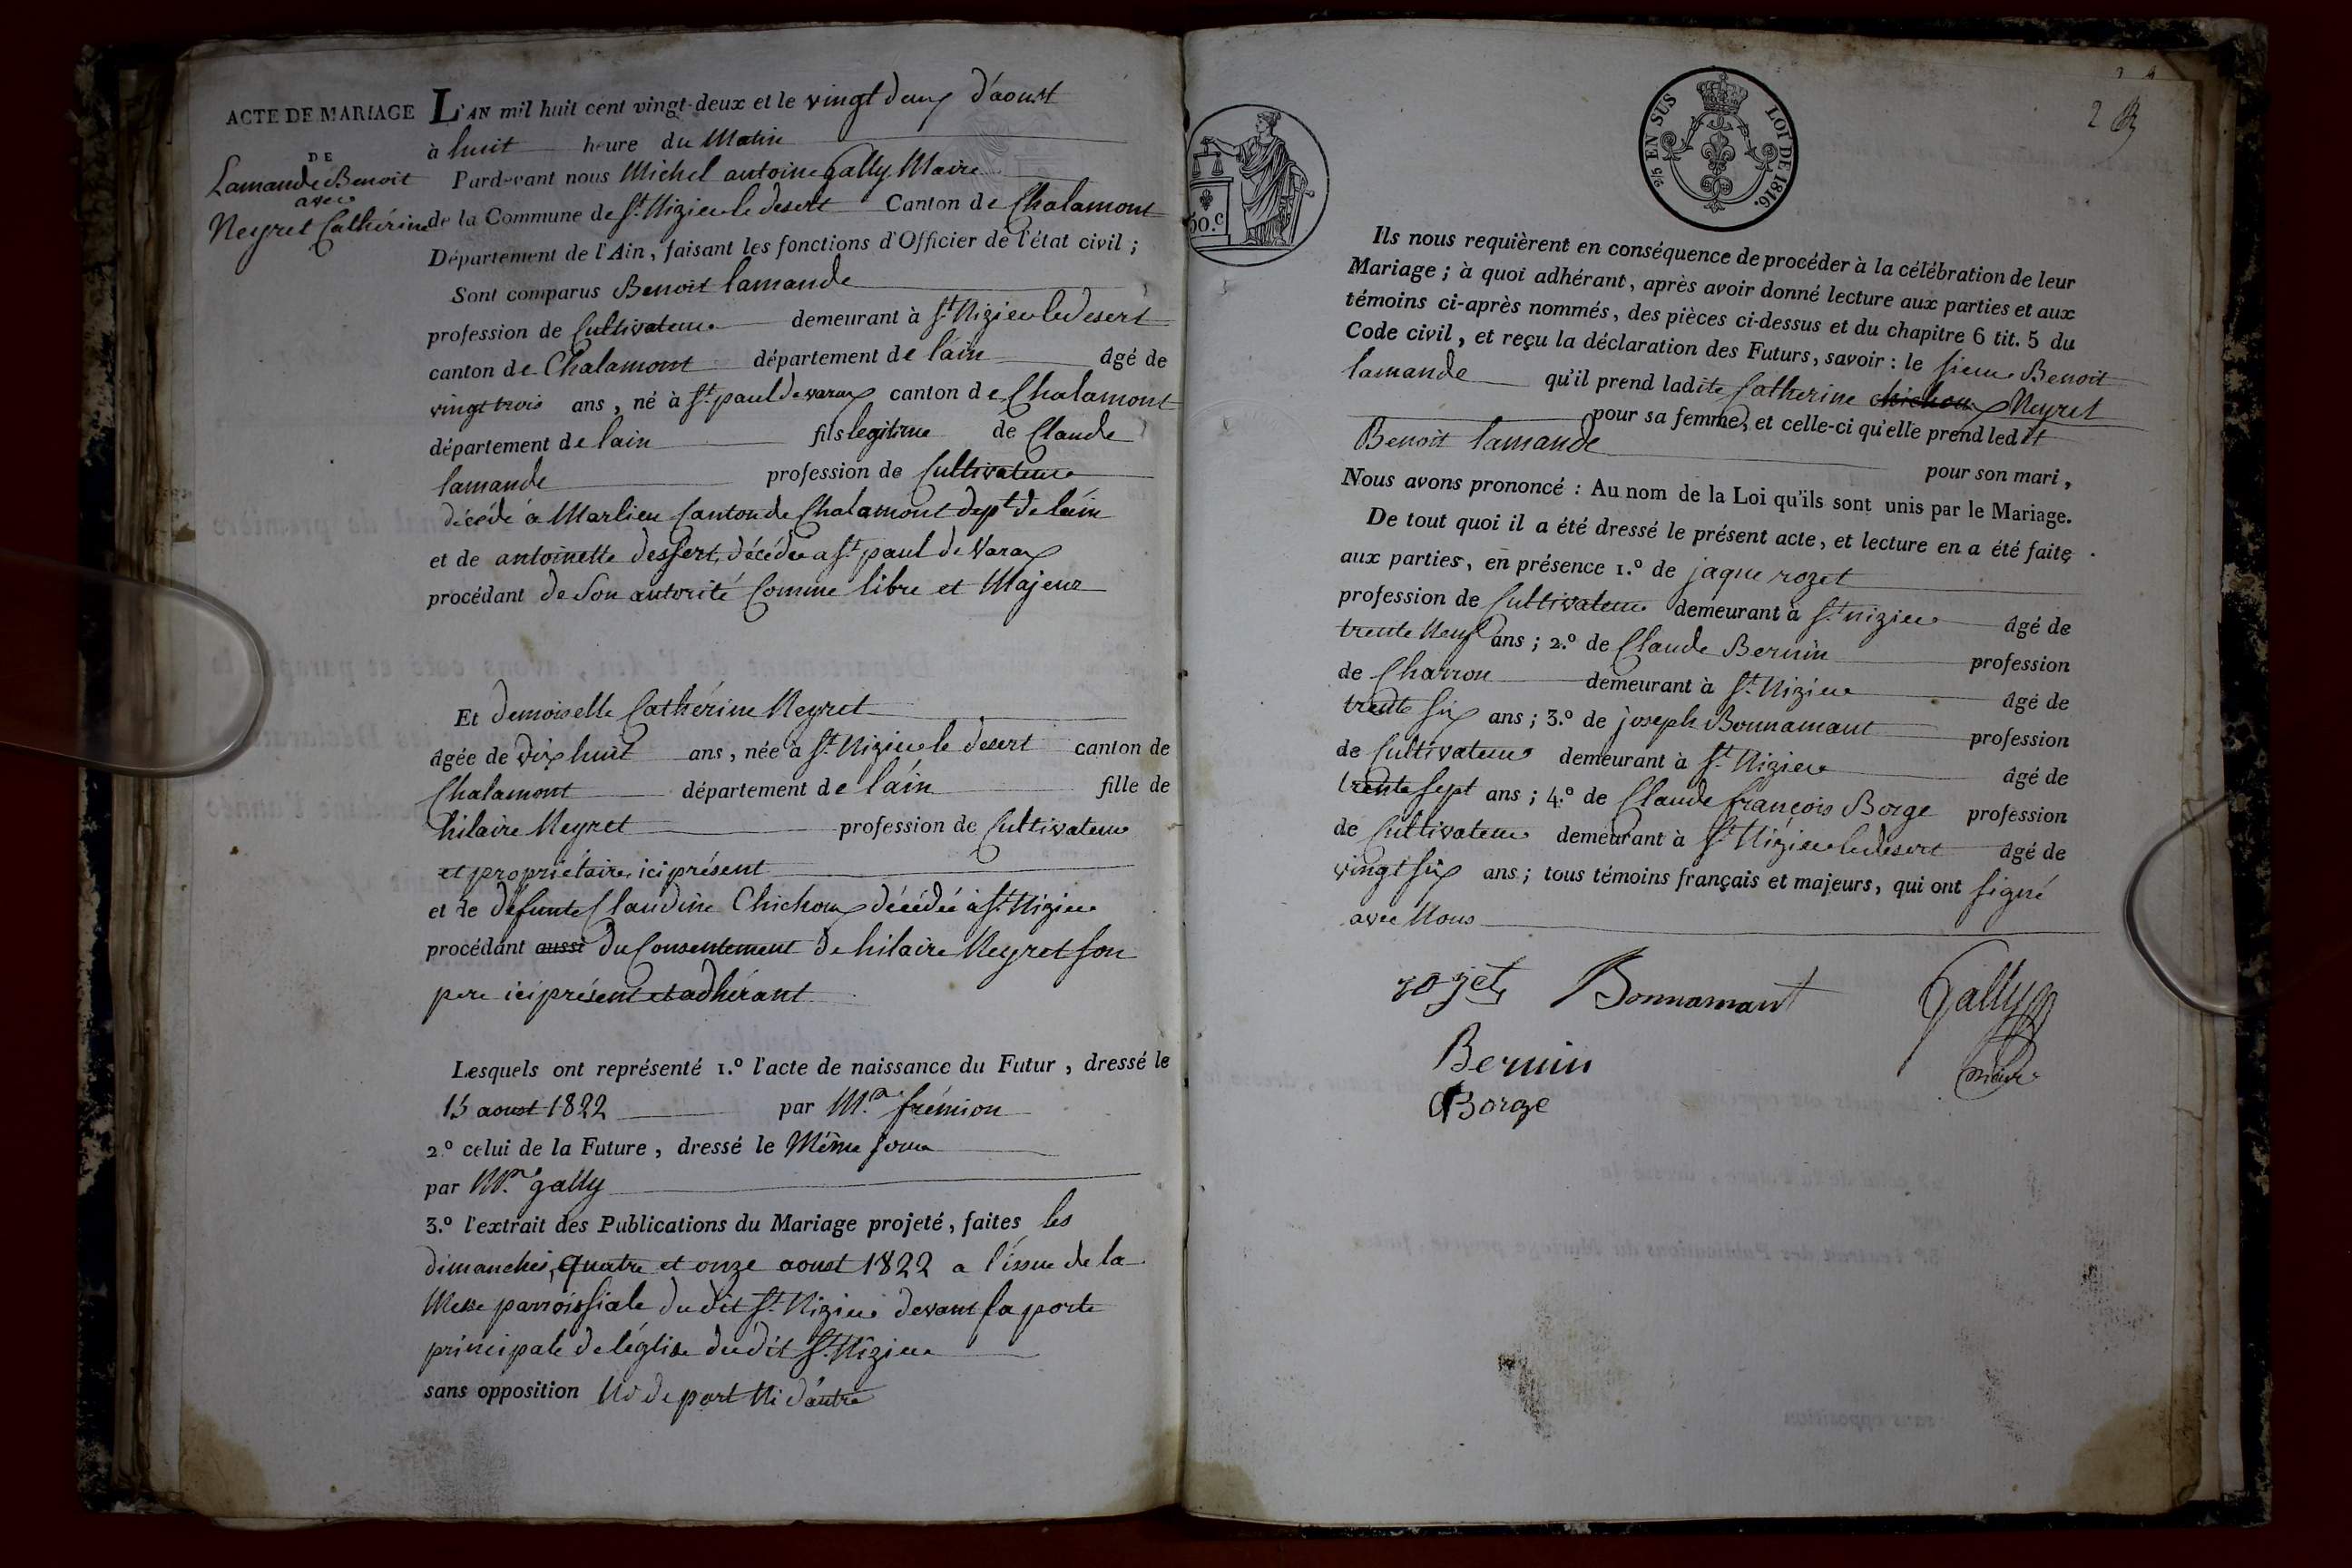 ACTE DE MARIAGE
DE
Lamande Benoit
avec
Neyret Catherine
L'AN mil huit cent vingt-deux et le vingt deux d'aoust
à huit heure du Matin
Pard-vant nous Michel antoine Gally Maire
de la Commune de St. Nizier le desert Canton de Chalamont
Département de l'Ain, faisant les fonctions d'Officier de l'état civil ;
Sont comparus Benoit lamande
profession de Cultivateur demeurant à St. Nizier le desert
canton de Chalamont département de l'ain âgé de
vingt trois ans, né à St. paul de varax canton de Chalamont
département de lain fils legitime de Claude
lamande profession de Cultivateur
décédé à Marlieu Canton de Chalamont dept de l'ain
et de antoinette dessert, décédée a St. paul de Varax
procédant de Son autorité Comme libre et Majeur
Et demoiselle Cathérine Neyret
âgée de dix huit ans, née à St. Nizier le desert canton de
Chalamont département de l'ain fille de
hilaire Neyret profession de Cultivateur
et propriétaire ici présent
et de défunte Claudine Chichoux décédée à St. Nizier
procédant aussi du Consentement de hilaire Neyret son
pere ici présent et adhérant
Lesquels ont représenté 1.º l'acte de naissance du Futur, dressé le
15 aoust 1822 par Mr. frémion
2.º celui de la Future, dressé le Même jour
par Mr. gally
3.º l'extrait des Publications du Mariage projeté, faites les
dimanches, quatre et onze aoust 1822 a l'issue de la
Messe parroissiale du dit St. Nizier devant la porte
principale de léglise dudit St. Nizier
sans opposition Ni de part Ni d'autre
50.c
2/5 EN SUS LOI DE 1816.
2
Ils nous requièrent en conséquence de procéder à la célébration de leur
Mariage ; à quoi adhérant, après avoir donné lecture aux parties et aux
témoins ci-après nommés, des pièces ci-dessus et du chapitre 6 tit. 5 du
Code civil, et reçu la déclaration des Futurs, savoir : le sieur Benoit
lamande qu'il prend ladite Catherine chichoux Neyret
pour sa femme, et celle-ci qu'elle prend ledit
Benoit lamande pour son mari,
Nous avons prononcé : Au nom de la Loi qu'ils sont unis par le Mariage.
De tout quoi il a été dressé le présent acte, et lecture en a été faite
aux parties, en présence 1.º de jaque rozet
profession de Cultivateur demeurant à St. nizier âgé de
trente Neuf ans ; 2.º de Claude Bernin profession
de Charron demeurant à St. Nizier âgé de
trente six ans ; 3.º de joseph Bonnamant profession
de Cultivateur demeurant à St. Nizier âgé de
trente sept ans ; 4.º de Claude françois Borge profession
de Cultivateur demeurant à St. Nizier le desert âgé de
vingt six ans ; tous témoins français et majeurs, qui ont signé
avec Nous
rozet Bonnamant Gally
Bernin maire
Borge